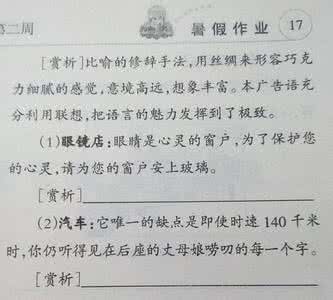 第二周
暑假作业 17
[赏析]比喻的修辞手法,用丝绸来形容巧克
力细腻的感觉,意境高远,想象丰富。本广告语充
分利用联想,把语言的魅力发挥到了极致。
(1)眼镜店:眼睛是心灵的窗户,为了保护您
的心灵,请为您的窗户安上玻璃。
[赏析]
(2)汽车:它唯一的缺点是即使时速140千米
时,你仍听得见在后座的丈母娘唠叨的每一个字。
[赏析]